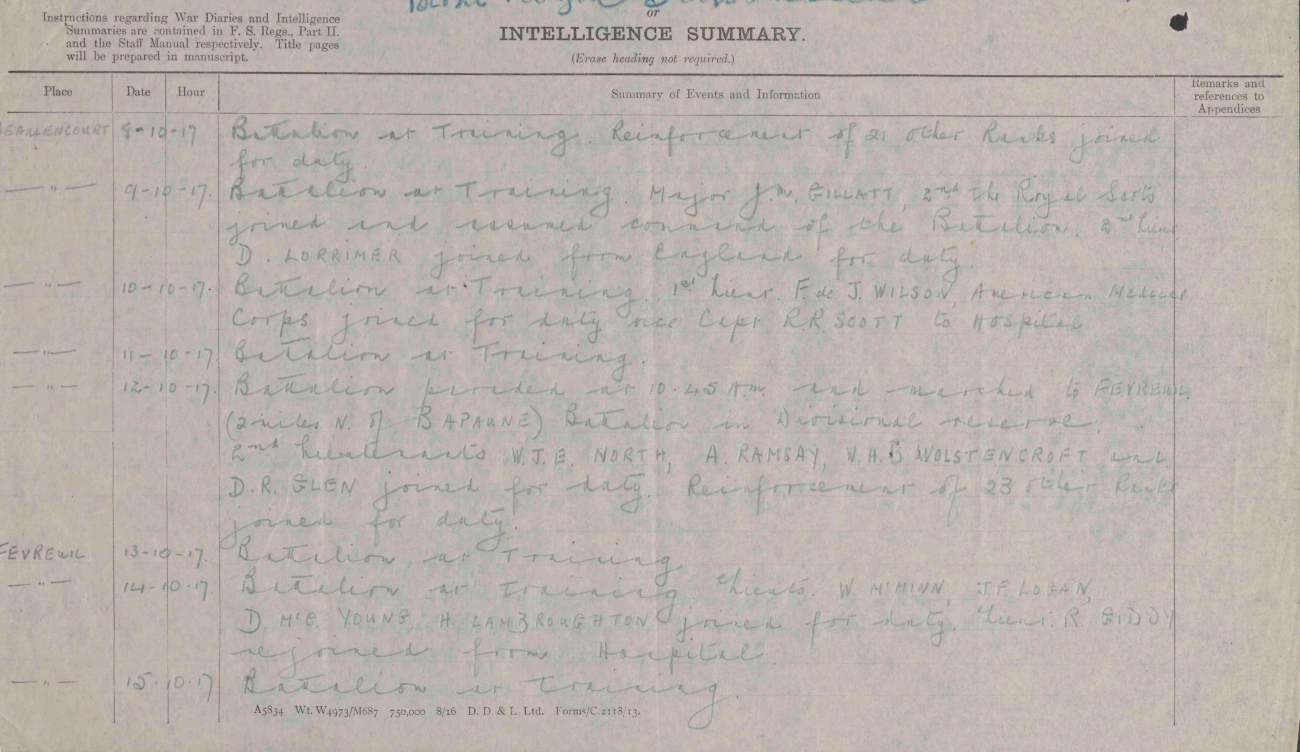 Instructions regarding War Diaries and Intelligence
Summaries are contained in F. S. Regs., Part II.
and the Staff Manual respectively. Title pages
will be prepared in manuscript.
or
INTELLIGENCE SUMMARY.
(Erase heading not required.)
Place Date Hour Summary of Events and Information Remarks and
references to
Appendices
BEAULENCOURT 8-10-17 Battalion at Training. Reinforcement of 21 other Ranks joined
for duty.
— " — 9-10-17. Battalion at Training. Major J.M. GILLATT, 2nd the Royal Scots
joined and assumed command of the Battalion. 2nd Lieut
D. LORRIMER joined from England for duty.
— " — 10-10-17. Battalion at Training. 1st Lieut. F. de J. WILSON, American Medical
Corps joined for duty vice Capt R.R. SCOTT to Hospital
— " — 11-10-17. Battalion at Training.
— " — 12-10-17. Battalion paraded at 10.45 Am. and marched to FEVREUIL
(2 miles N. of BAPAUNE) Battalion in Divisional reserve.
2nd Lieutenants W.J.E. NORTH, A. RAMSAY, V.H. WOLSTENCROFT and
D.R. GLEN joined for duty. Reinforcement of 23 other Ranks
joined for duty.
FEVREUIL 13-10-17. Battalion at Training
— " — 14-10-17. Battalion at Training. Lieuts. W. McMINN, J.F. LOGAN,
D. McG. YOUNG, H. LAMBROUGHTON joined for duty. Lieut. R GIDDY
rejoined from Hospital.
— " — 15-10-17 Battalion at Training.
A5834 Wt. W4973/M687 750,000 8/16 D. D. & L. Ltd. Forms/C.2118/13.